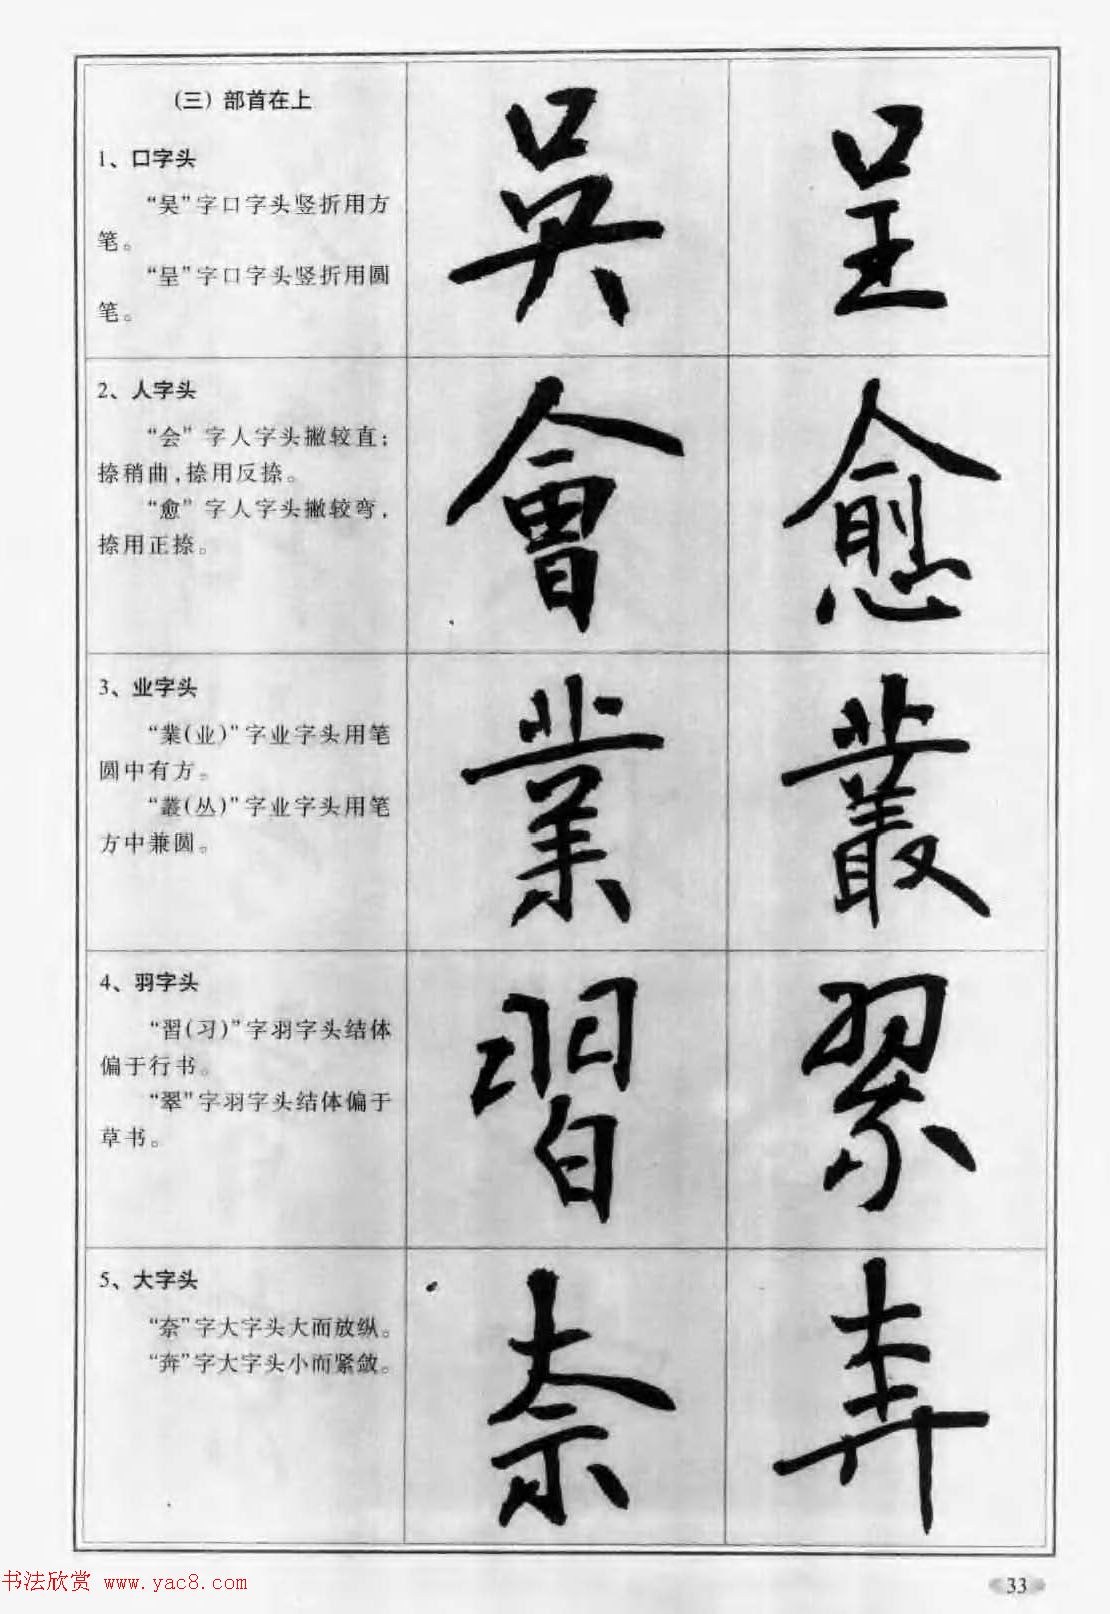 (三) 部首在上
1、口字头
“吴”字口字头竖折用方
笔。
“呈”字口字头竖折用圆
笔。
吳 呈
2、人字头
“会”字人字头撇较直;
捺稍曲,捺用反捺。
“愈”字人字头撇较弯,
捺用正捺。
會 愈
3、业字头
“業(业)”字业字头用笔
圆中有方。
“叢(丛)”字业字头用笔
方中兼圆。
業 叢
4、羽字头
“習(习)”字羽字头结体
偏于行书。
“翠”字羽字头结体偏于
草书。
習 翠
5、大字头
“奈”字大字头大而放纵。
“奔”字大字头小而紧敛。
奈 奔
书法欣赏 www.yac8.com
33